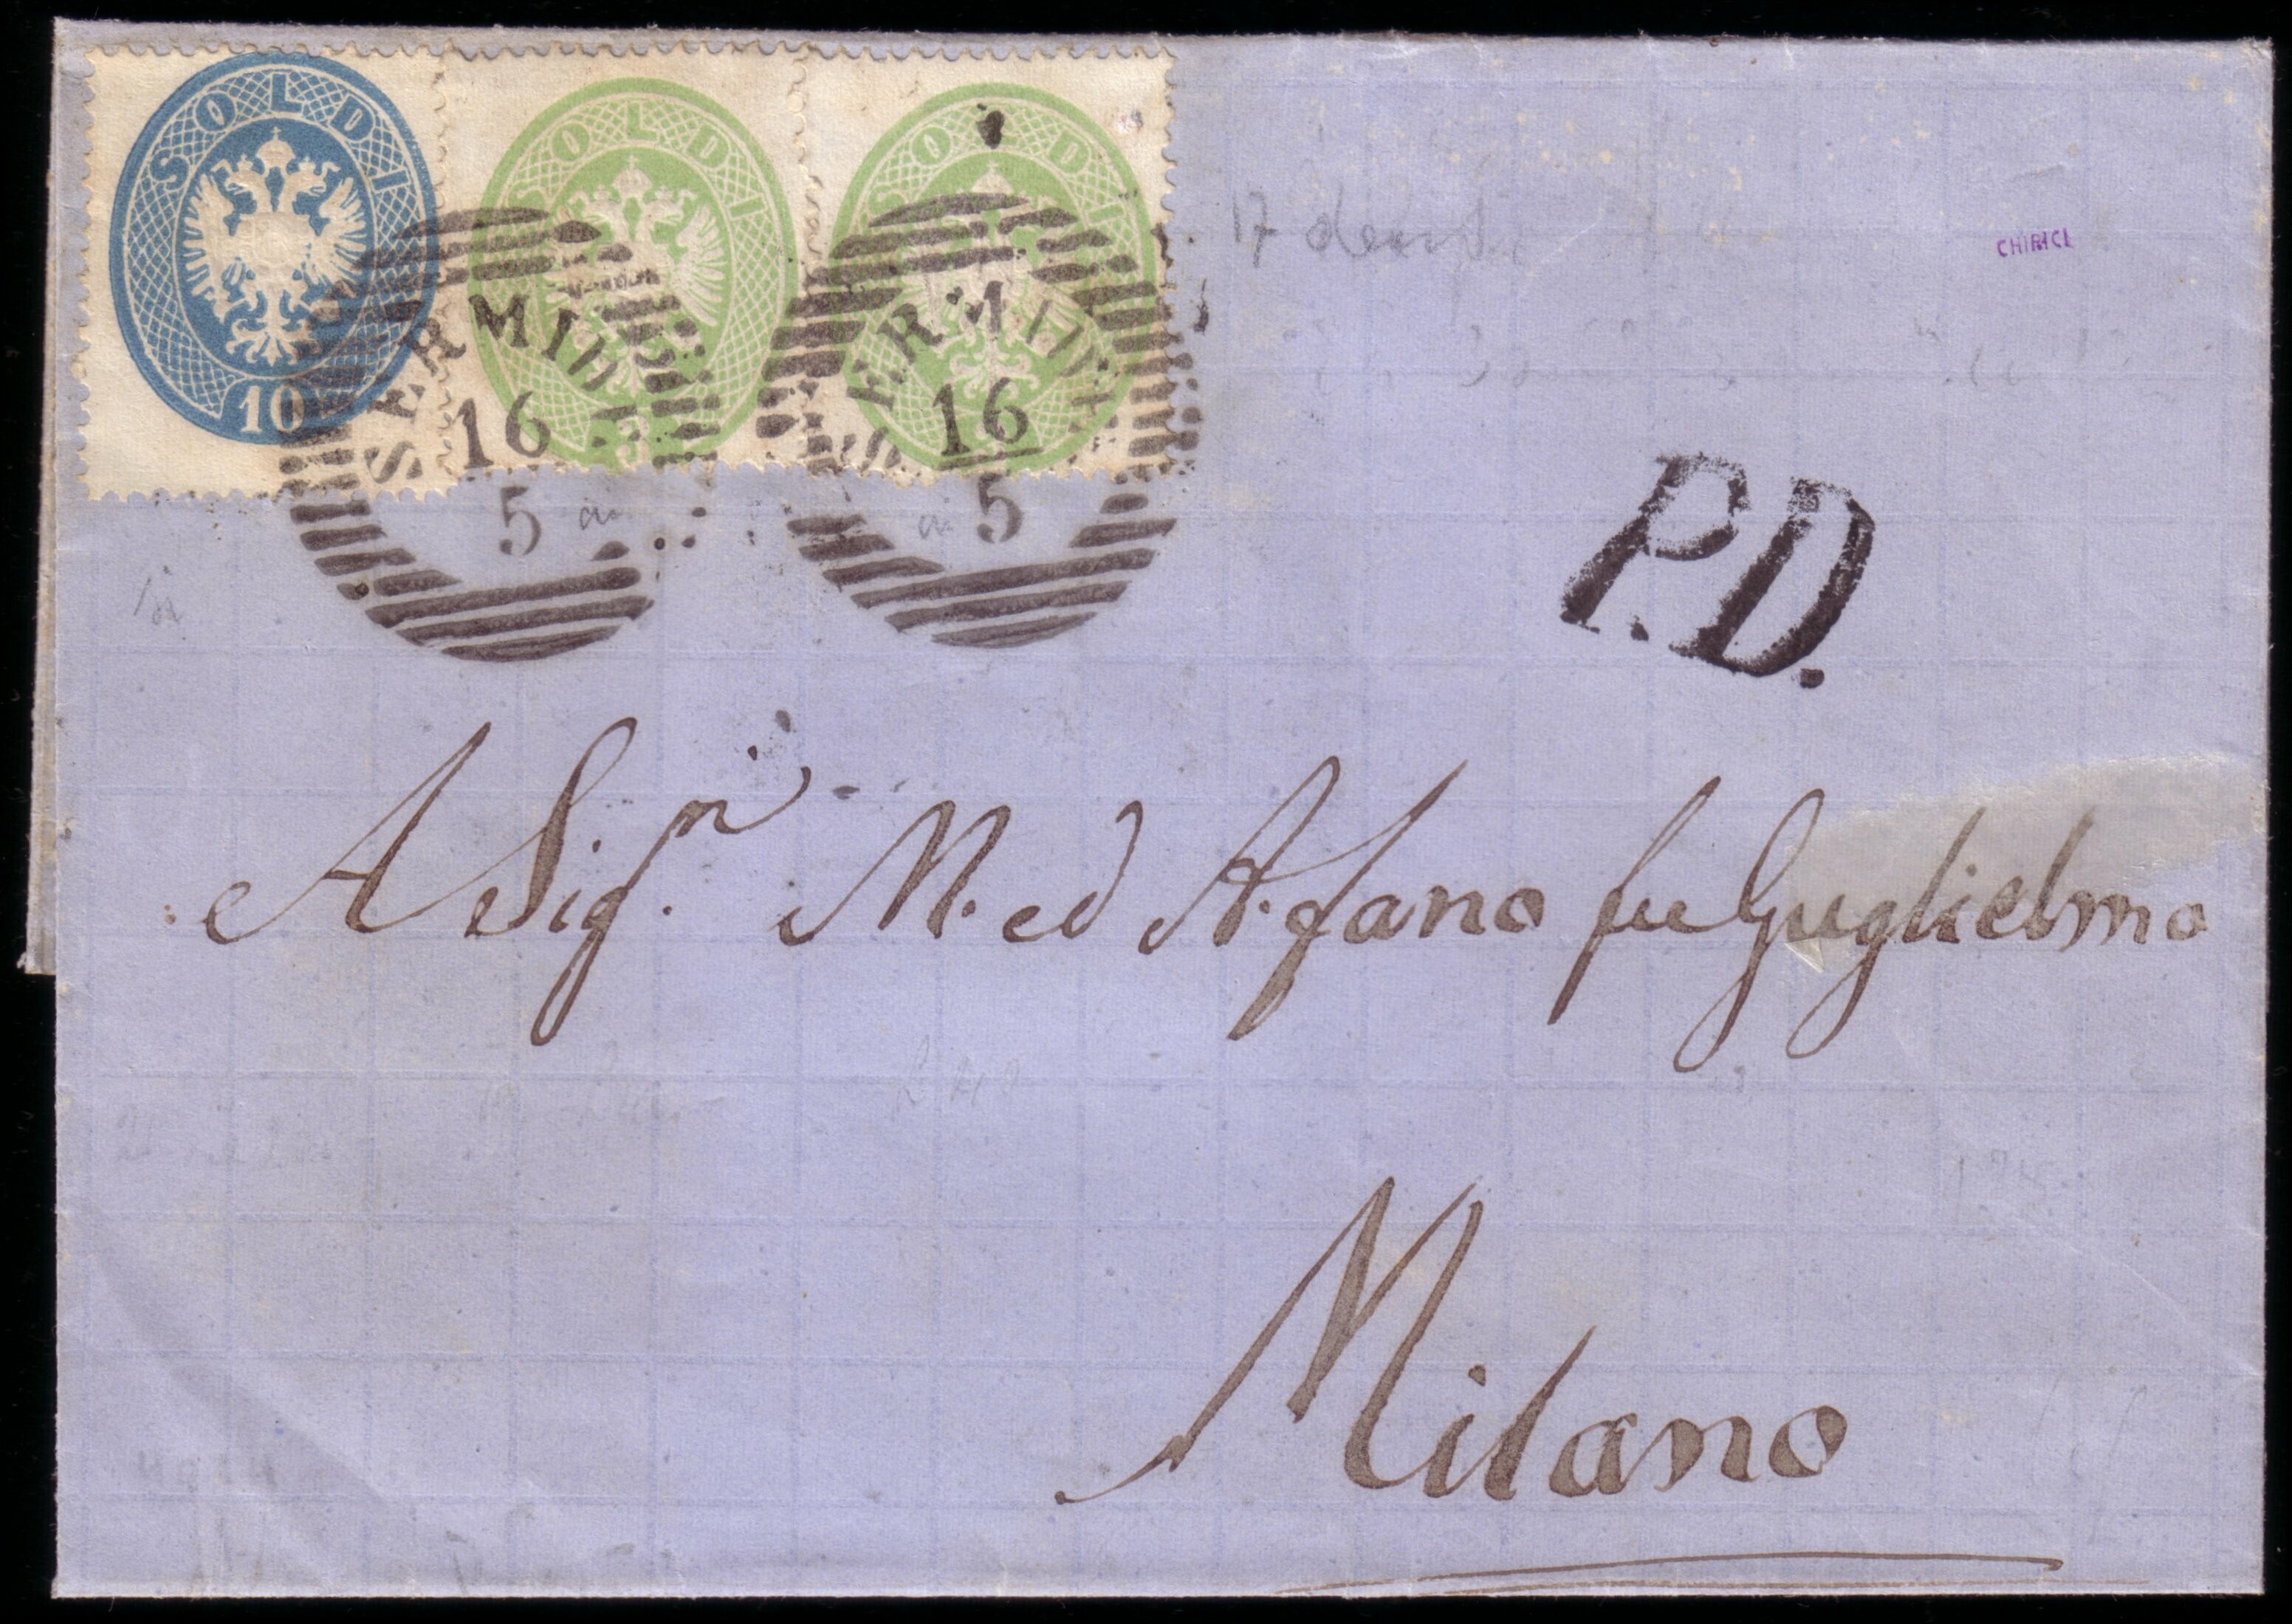 SOLDI 10
SOLDI 3
SOLDI
SERMIDE
16
5
SERMIDE
16
5
17
CHIRICI
P.D.
A Sig.ri M. ed A. Fano fu Guglielmo
Milano